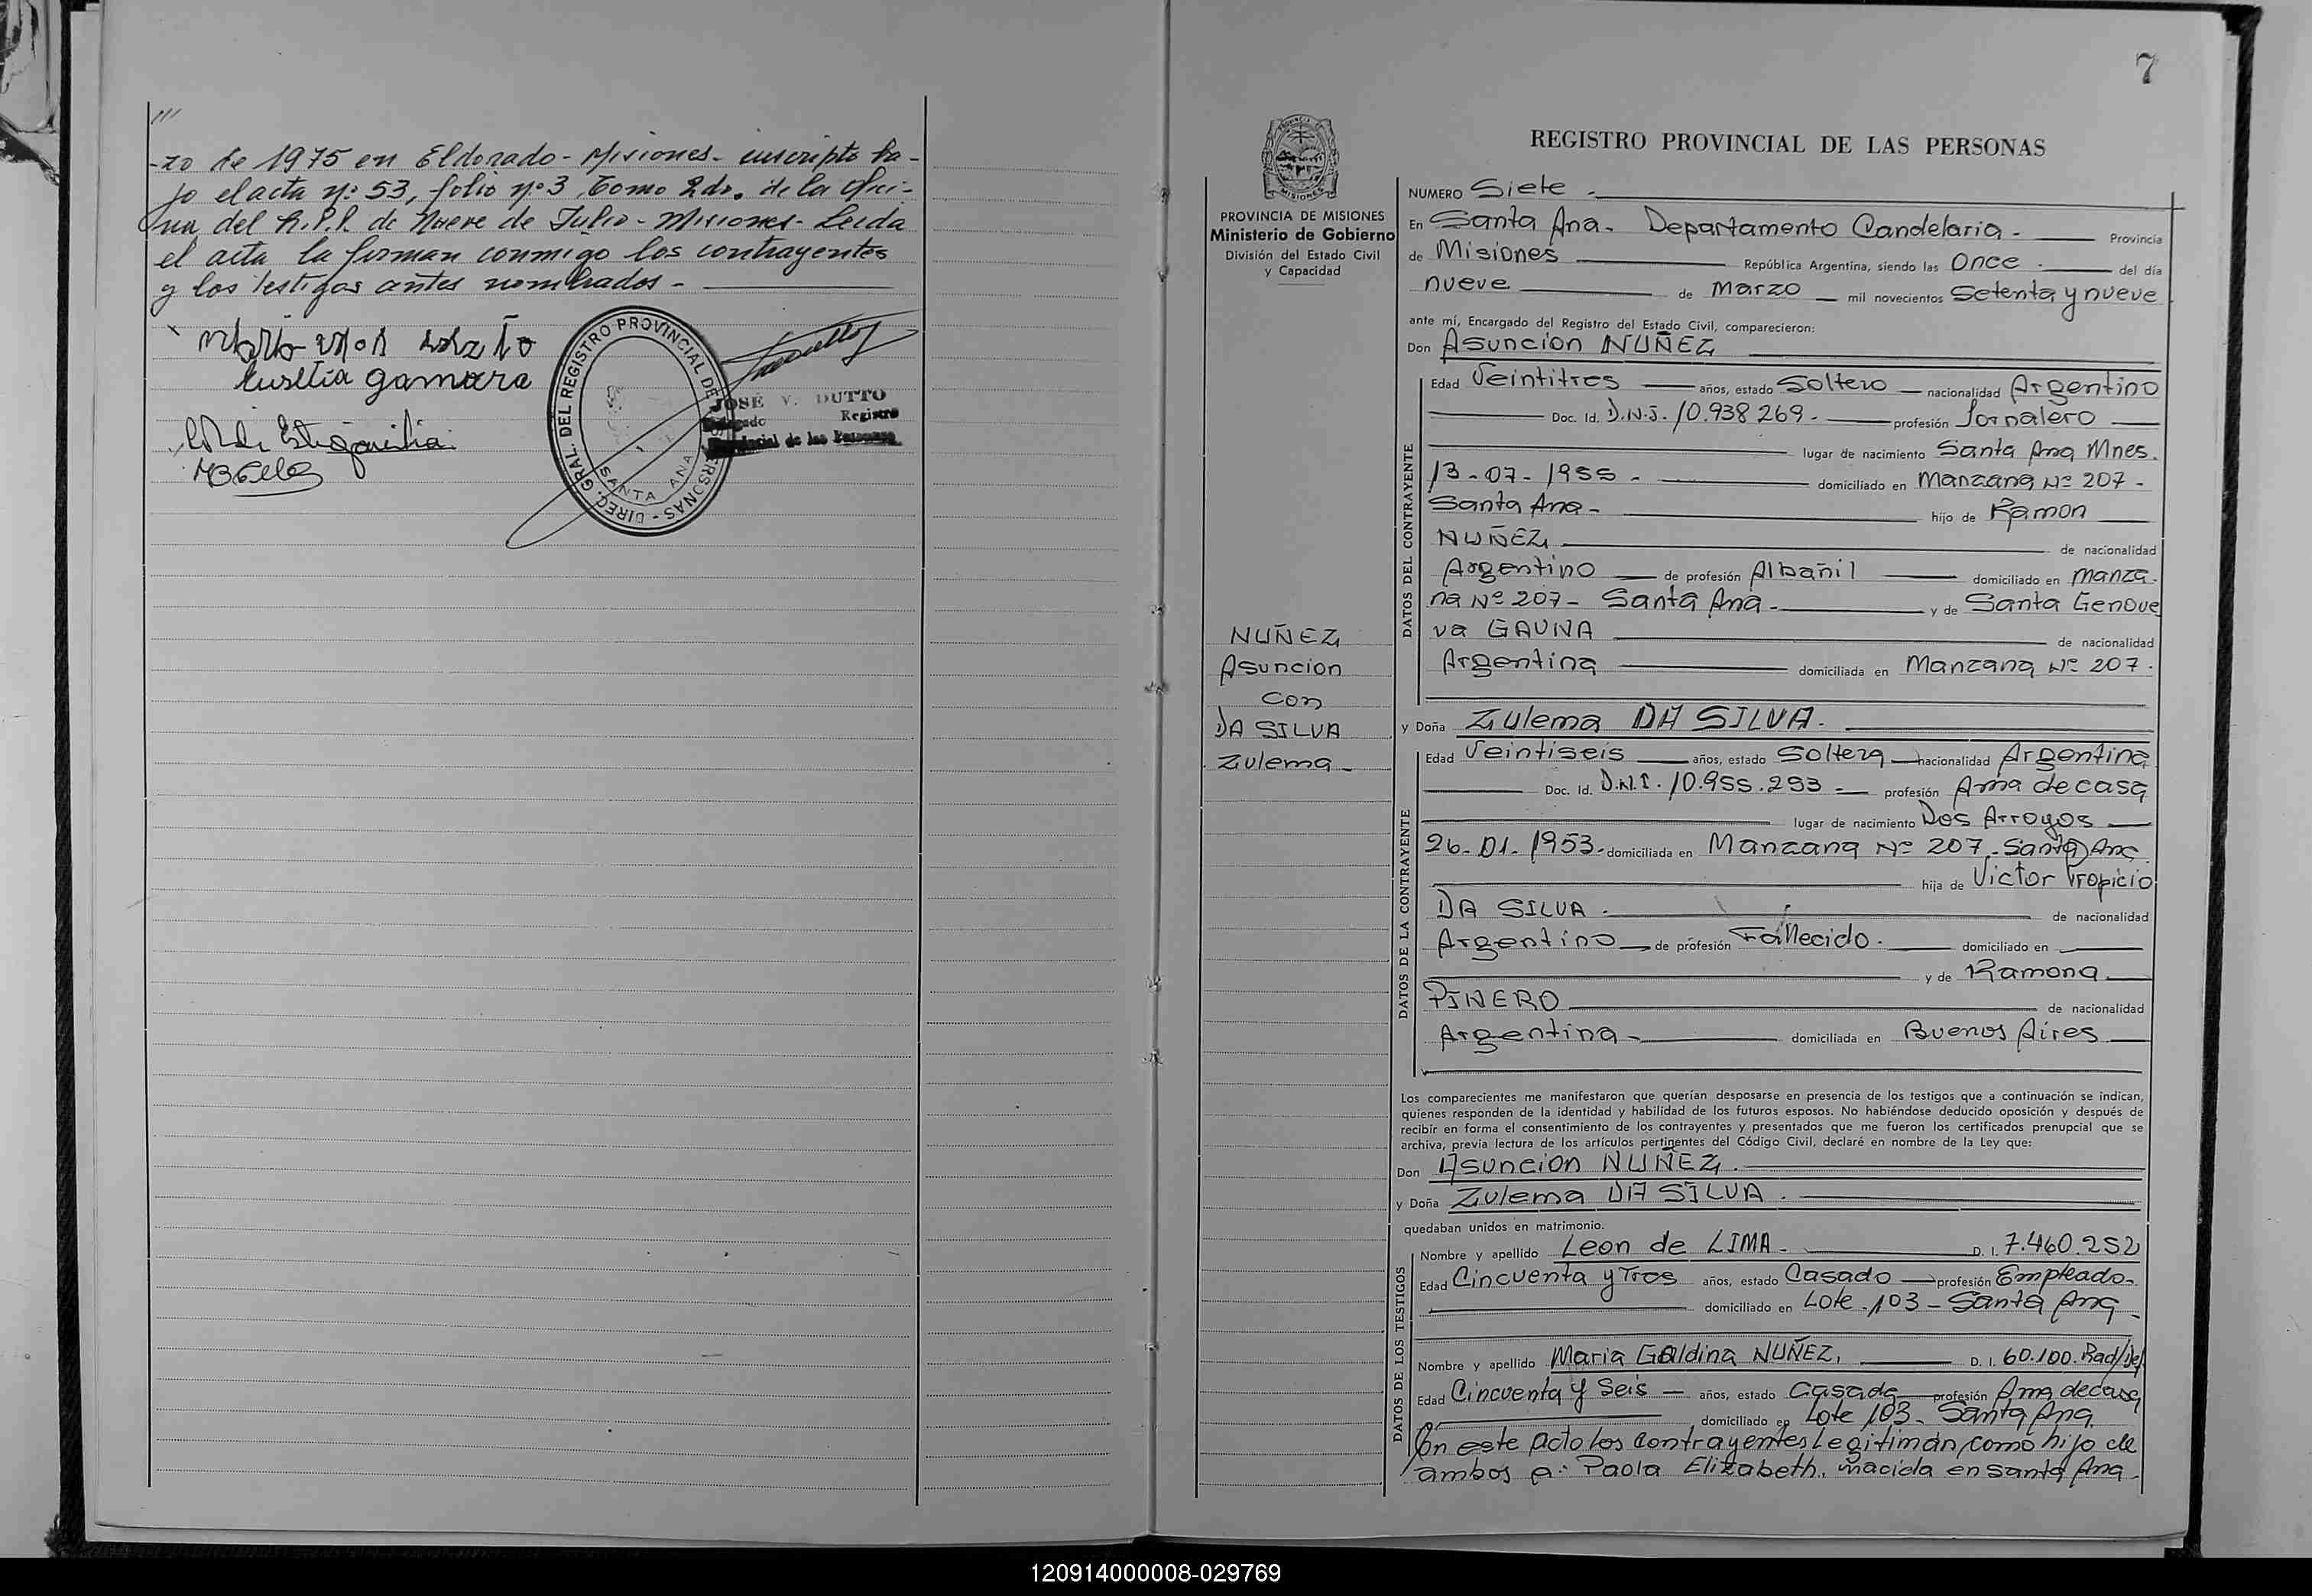 ///
-zo de 1975 en Eldorado - Misiones - inscripto ba-
jo el acta nº: 53, folio nº 3, Tomo 2do. de la ofici-
na del R.P.P. de Nueve de Julio - Misiones - Leida
el acta la firman conmigo los contrayentes
y los testigos antes nombrados -
gamarra
DIREC. GRAL. DEL REGISTRO PROVINCIAL DE LAS PERSONAS -
SANTA ANA
JOSÉ V. DUTTO
Delegado Registro
Provincial de las Personas
7
REGISTRO PROVINCIAL DE LAS PERSONAS
PROVINCIA DE MISIONES
Ministerio de Gobierno
División del Estado Civil
y Capacidad
NUÑEZ
Asuncion
con
DA SILVA
Zulema -
NUMERO Siete -
En Santa Ana - Departamento Candelaria - Provincia
de Misiones República Argentina, siendo las Once - del día
nueve de Marzo mil novecientos Setenta y nueve
ante mí, Encargado del Registro del Estado Civil, comparecieron:
Don Asuncion NUÑEZ
DATOS DEL CONTRAYENTE
Edad Veintitres años, estado Soltero nacionalidad Argentino
Doc. Id. D.N.I. 10.938.269 - profesión Jornalero
lugar de nacimiento Santa Ana Mnes.
13-07-1955 - domiciliado en Manzana Nº 207 -
Santa Ana - hijo de Ramon
NUÑEZ de nacionalidad
Argentino de profesión Albañil domiciliado en manza-
na Nº 207 - Santa Ana - y de Santa Genove
va GAUNA de nacionalidad
Argentina domiciliada en Manzana Nº 207 -
y Doña Zulema DA SILVA -
DATOS DE LA CONTRAYENTE
Edad Veintiseis años, estado Soltera nacionalidad Argentina
Doc. Id. D.N.I. 10.955.293 - profesión Ama de casa
lugar de nacimiento Dos Arroyos
26-01-1953 - domiciliada en Manzana Nº 207 - Santa Ana
hija de Victor Propicio
DA SILVA - de nacionalidad
Argentino de profesión Fallecido - domiciliado en
y de Ramona
PINERO de nacionalidad
Argentina - domiciliada en Buenos Aires
Los comparecientes me manifestaron que querían desposarse en presencia de los testigos que a continuación se indican,
quienes responden de la identidad y habilidad de los futuros esposos. No habiéndose deducido oposición y después de
recibir en forma el consentimiento de los contrayentes y presentados que me fueron los certificados prenupcial que se
archiva, previa lectura de los artículos pertinentes del Código Civil, declaré en nombre de la Ley que:
Don Asuncion NUÑEZ -
y Doña Zulema DA SILVA -
quedaban unidos en matrimonio.
DATOS DE LOS TESTIGOS
Nombre y apellido Leon de LIMA - D. I. 7.460.252
Edad Cincuenta y Tres años, estado Casado profesión Empleado -
domiciliado en Lote 103 - Santa Ana -
Nombre y apellido Maria Galdina NUÑEZ, D. I. 60.100.
Edad Cincuenta y Seis años, estado Casada profesión Ama de casa
domiciliado en Lote 103 - Santa Ana
En este Acto los Contrayentes Legitiman como hijo de
ambos a: Paola Elizabeth, nacida en Santa Ana -
120914000008-029769